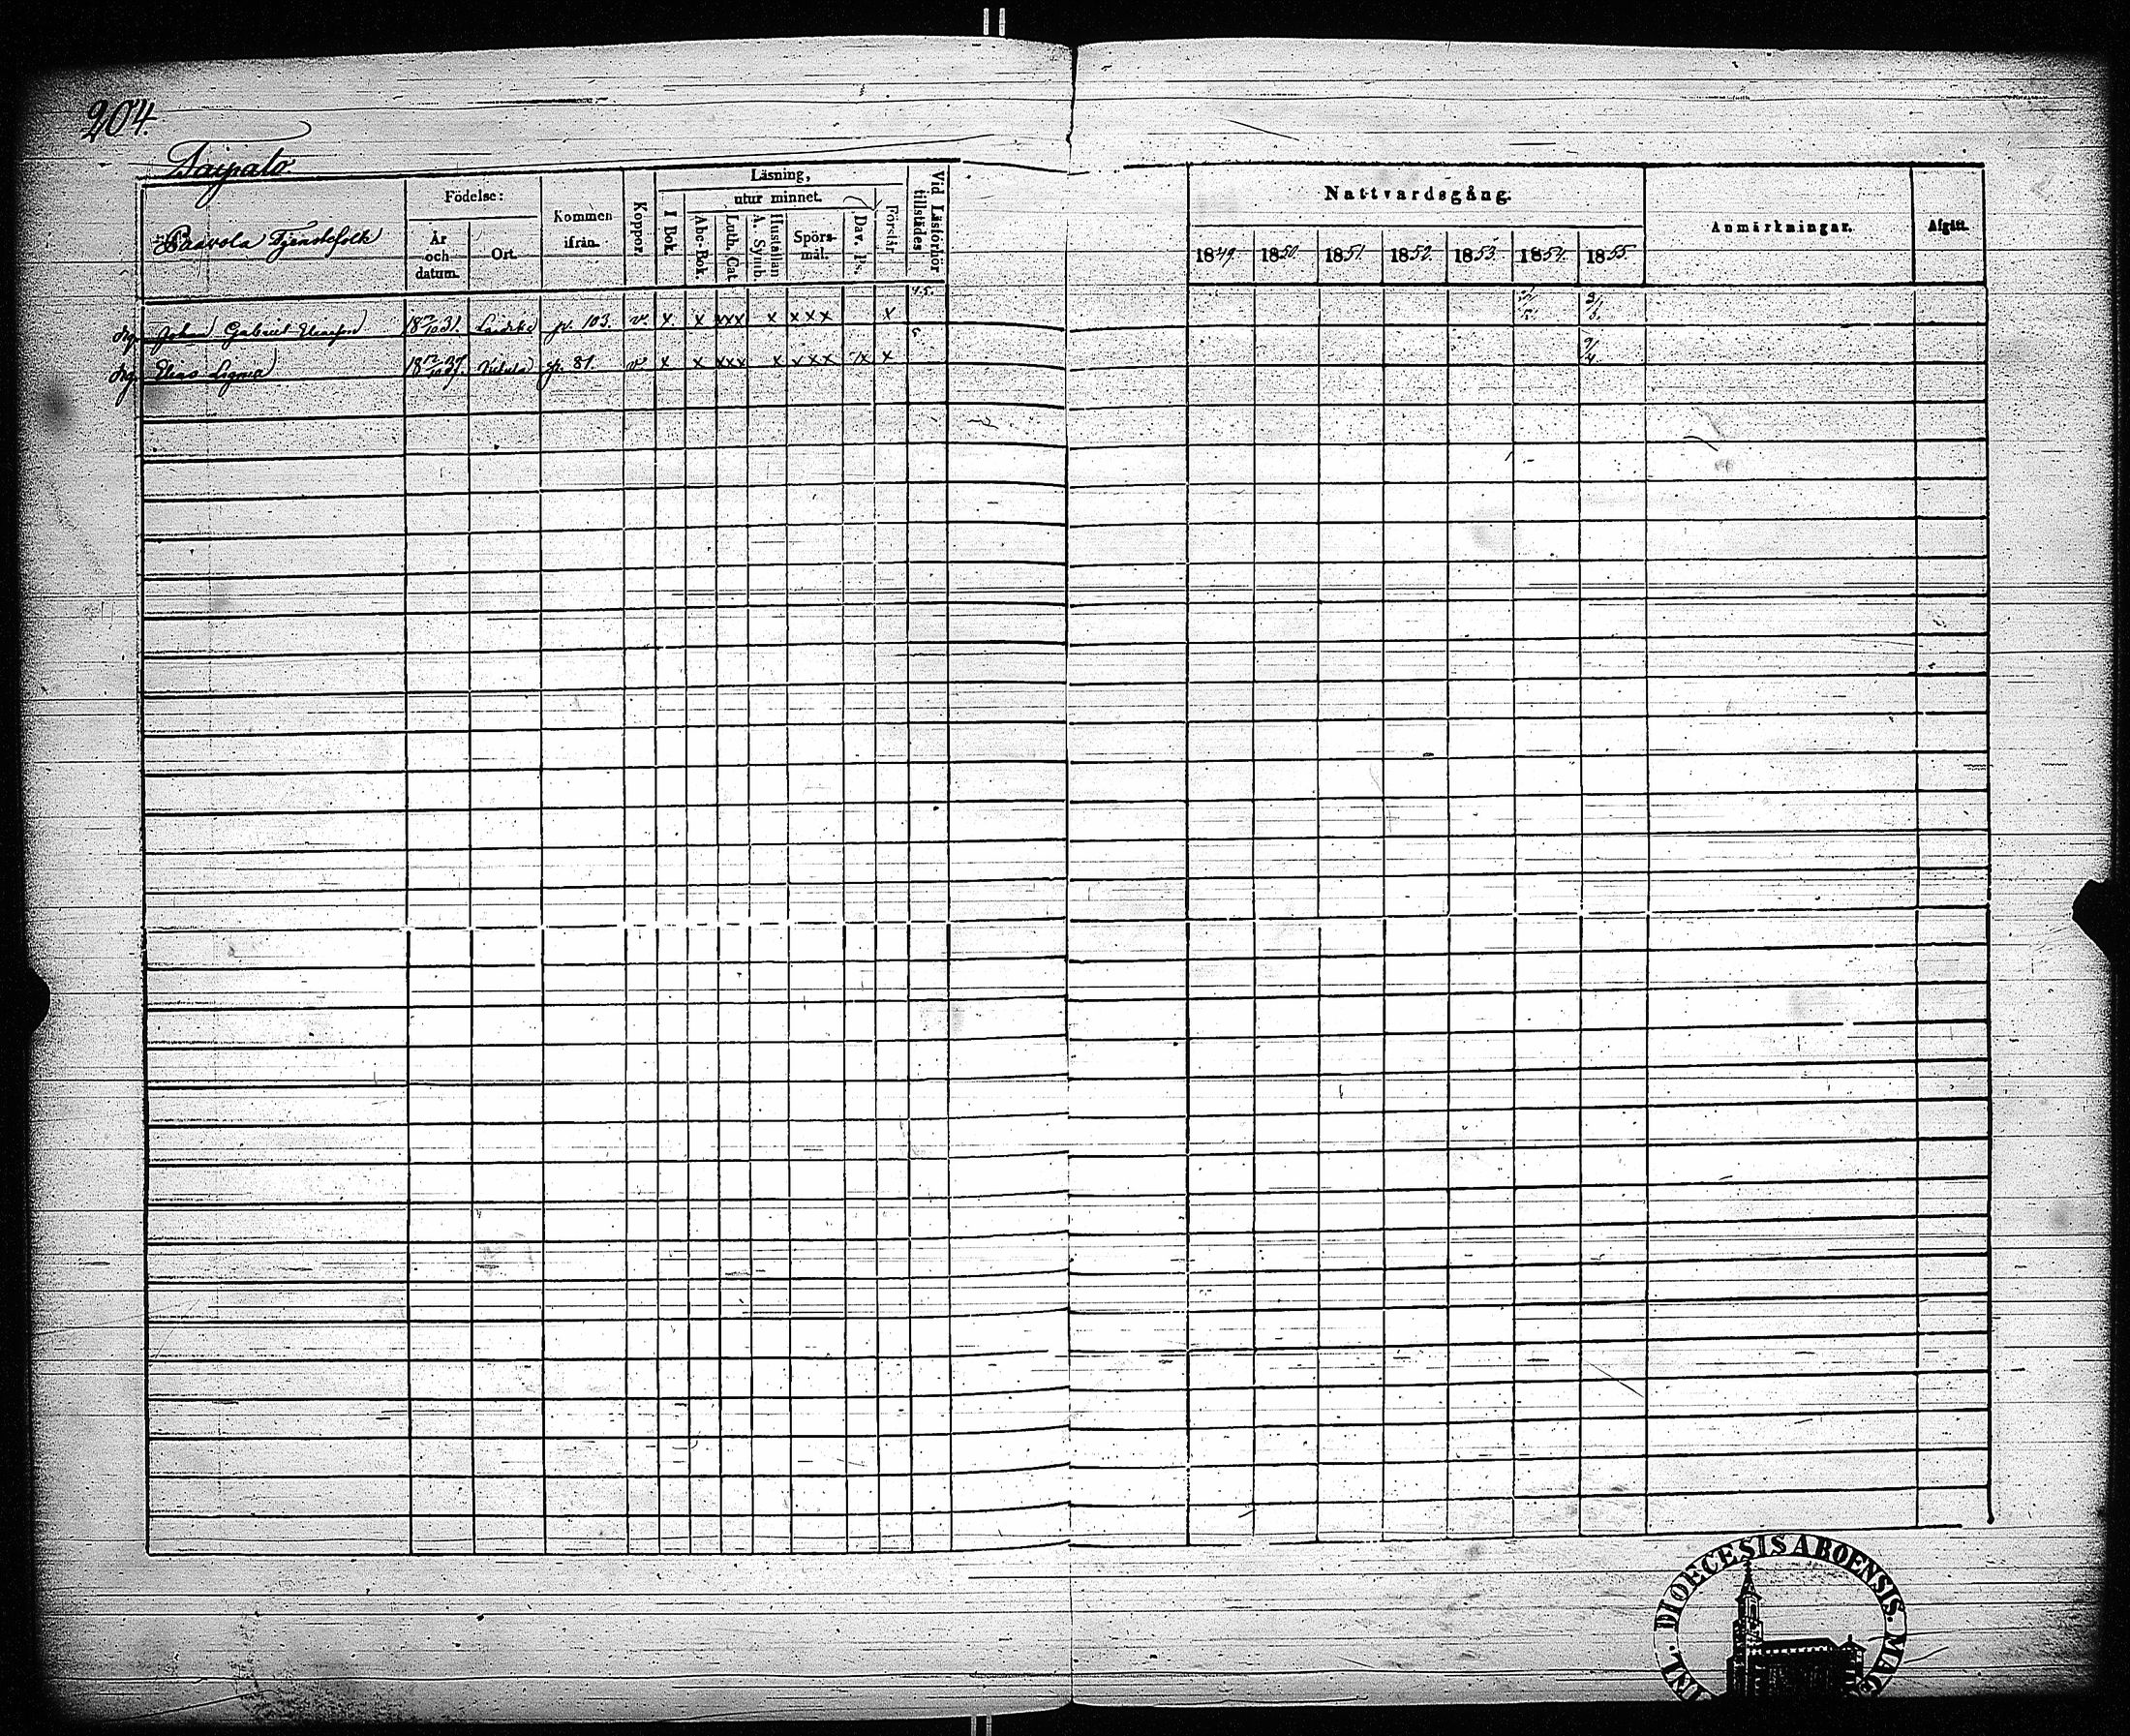 204.
Taipale
Paavola Tjenstefolk
Födelse:
År och datum.
Ort.
Kommen ifrån.
Koppor.
Läsning,
I Bok.
utur minnet.
Abc-Bok
Luth. Cat.
Hustaflan A. Symb.
Spörs-mål.
Dav. Ps.
Förstår
Vid Läsförhör tillstädes
Nattvardsgång.
1849. 1850. 1851. 1852. 1853. 1854. 1855.
Anmärkningar.
Afgått.
Drg. Johan Gabriel 31. p. 103. v x x xxx x xxx x 4.5.
Drg. Elias p. 81. v x x xxx x xxx x x 9/4
DIOECESIS ABOENSIS.